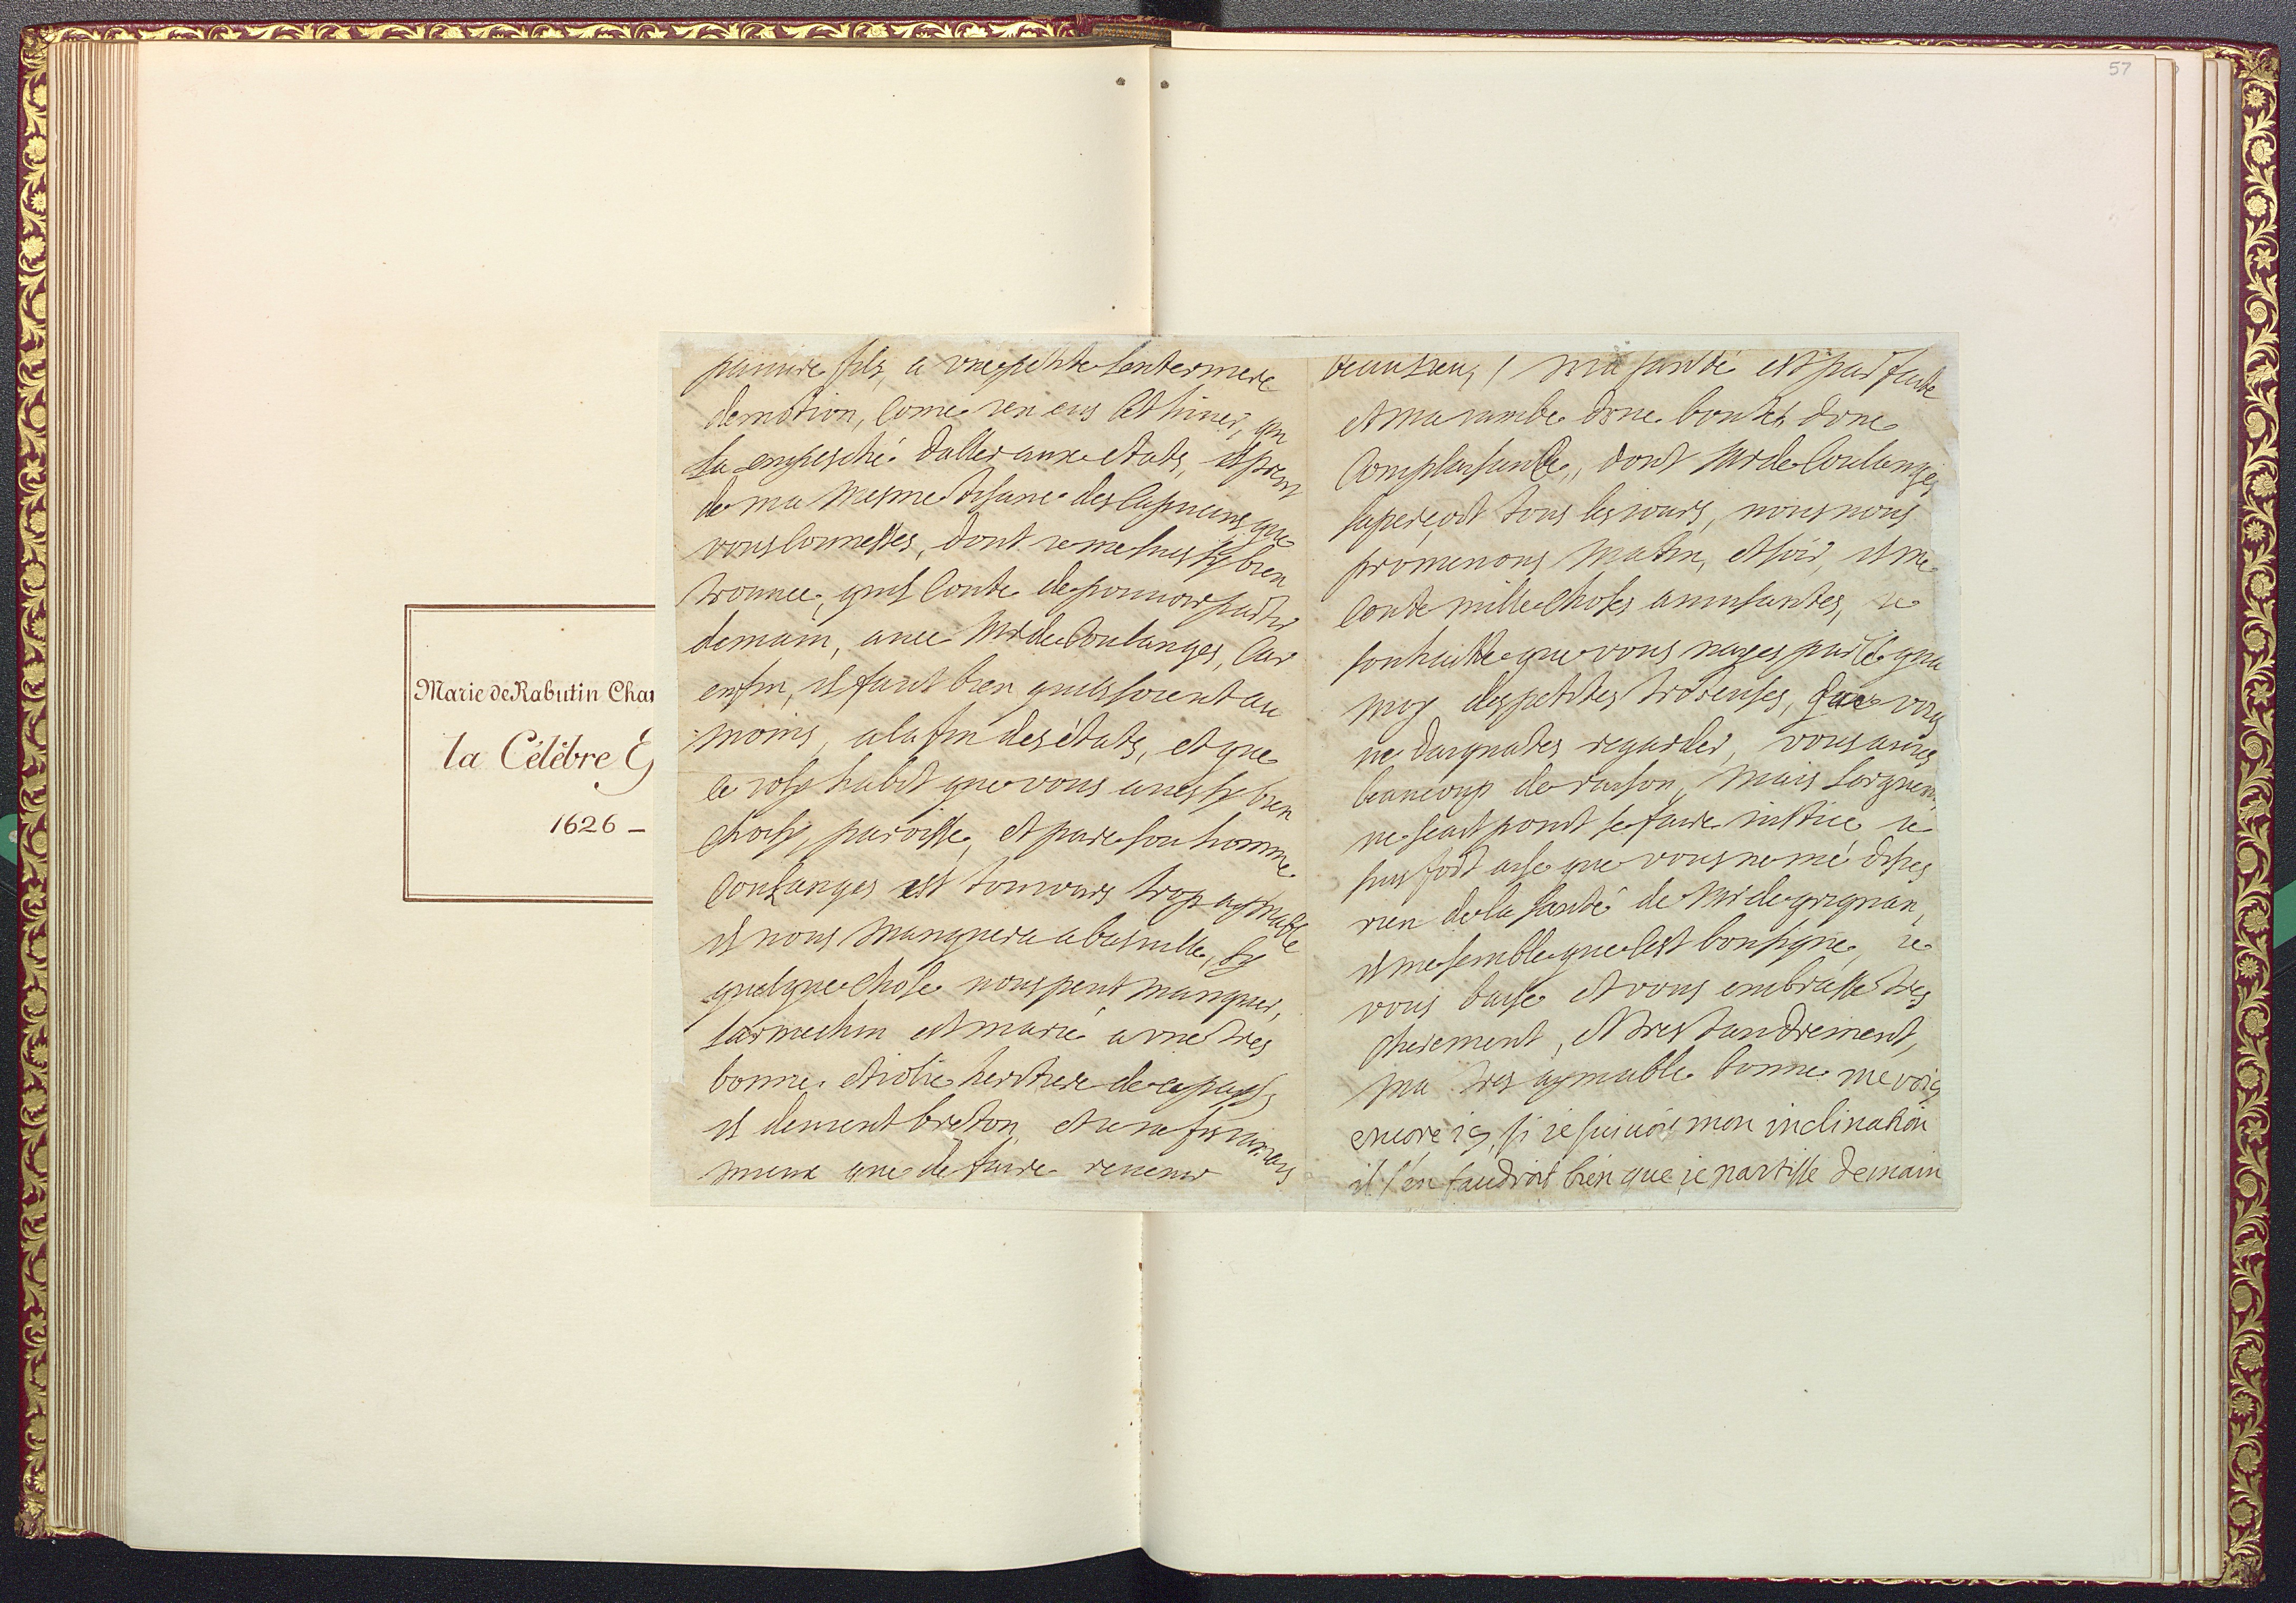 57
Marie de Rabutin Cha
la Célèbre E
1626 –
pauure fils, a vne petite
demotion, come ien eus cet hiuer, qui
la empesché daller aux etats, il prent
de ma mesme tisane des capucins que
vous connesses, dont ie me suis sy bien
trouuee, quil conte de pouuoir partir
demain, auec Mr de Coulanges, car
enfin, il faut bien quils soient au
moins, a la fin des états, et que
ce ioly habit que vous aues sy bien
choisy, paroisse, et pare son homme
Coulanges est tousiours trop aymable
il nous manquera a basuille, sy
quelque chose nous peut manquer,
larmechin est marié a vne tres
bonne et iolie heritiere de ce pays,
il deuient breton, et ie ne fis iamais
mieux que de faire reuenir
beaulieu, / ma santé est parfaite
et ma iambe dvne bonté, dvne
complaisance, dont Mr de Coulanges
saperçoit tous les iours, nous nous
promenons matin, et soir, il me
conte mille choses amusantes, ie
souhaitte que vous nayes parlé qua
moy des petites que vous
ne daignates regarder, vous auies
beaucoup de raison, mais lorgueil
ne scait point se faire iustice ie
suis fort aise que vous ne me disies
rien de la santé de Mr de grignan,
il me semble que cest bon signe, ie
vous baise et vous embrasse tres
cherement, et tres tandrement,
ma tres aymable bonne me voicy
encore icy, si ie suiuois mon inclination
il s'en faudroit bien que ie partisse demain